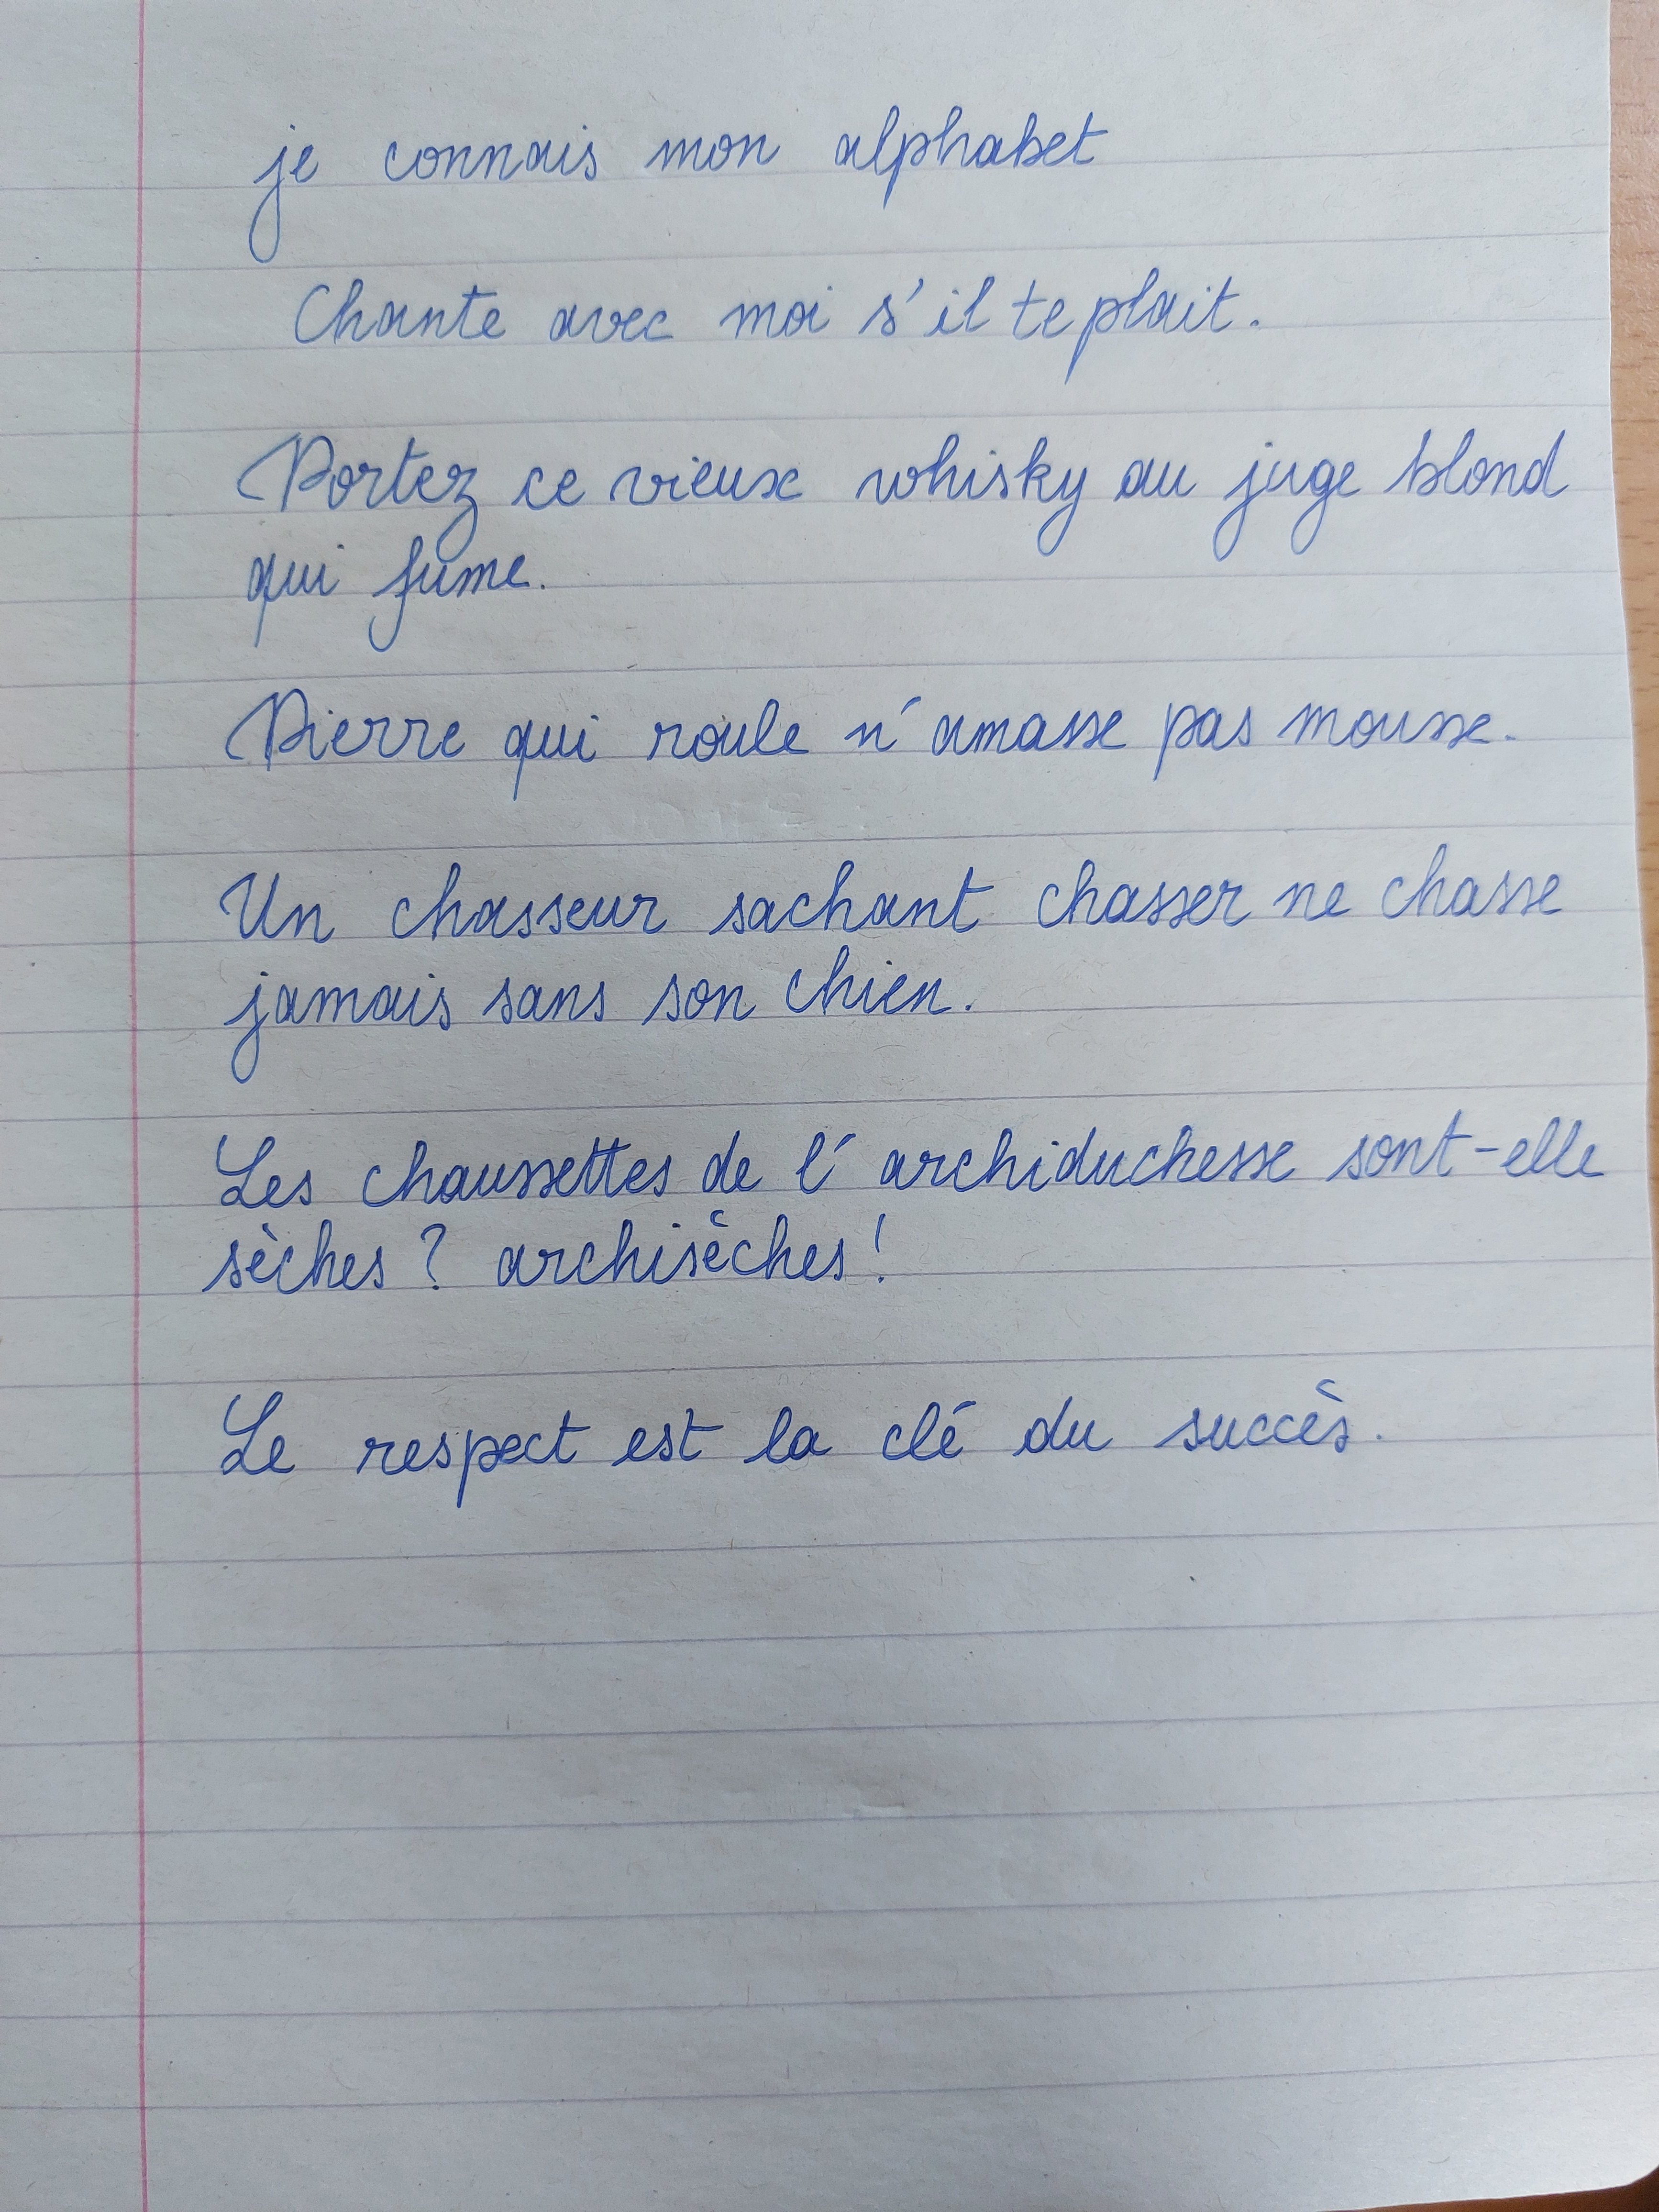 je connais mon alphabet
Chante avec moi s'il te plait.
Portez ce vieux whisky au juge blond
qui fume.
Pierre qui roule n'amasse pas mousse.
Un chasseur sachant chasser ne chasse
jamais sans son chien.
Les chaussettes de l'archiduchesse sont-elle
sèches ? archisèches !
Le respect est la clé du succès.